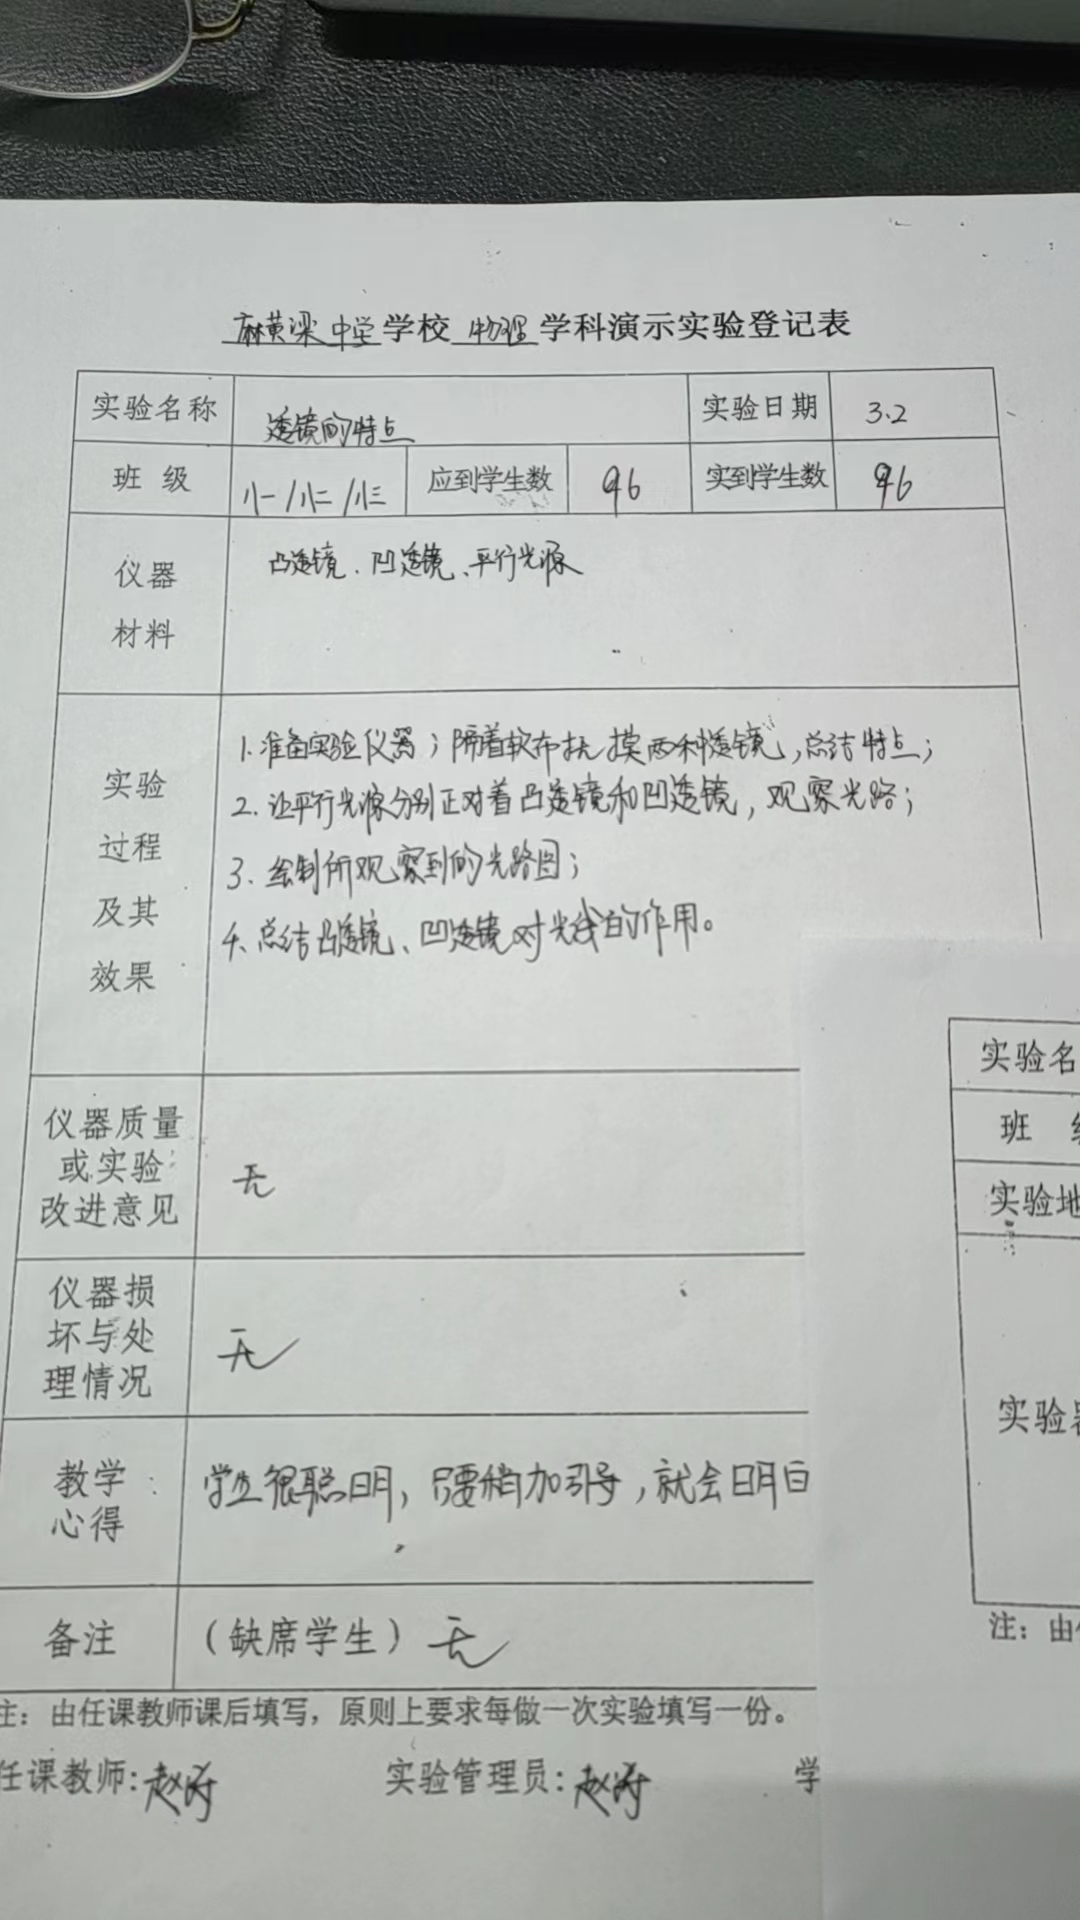 麻黄梁中学学校 物理 学科演示实验登记表
实验名称 透镜的特点 实验日期 3.2
班 级 八一/八二/八三 应到学生数 96 实到学生数 96
仪器 凸透镜、凹透镜、平行光源
材料
1.准备实验仪器；隔着软布抚摸两种透镜，总结特点；
实验
2.让平行光源分别正对着凸透镜和凹透镜，观察光路；
过程
3.绘制所观察到的光路图；
及其
4.总结凸透镜、凹透镜对光线的作用。
效果
仪器质量
或实验
改进意见
无
仪器损
坏与处
理情况
无
教学
心得
学生很聪明，只要稍加引导，就会明白
备注 （缺席学生）无
注：由任课教师课后填写，原则上要求每做一次实验填写一份。
任课教师： 实验管理员： 学
实验名
班
实验地
实验器
注：由